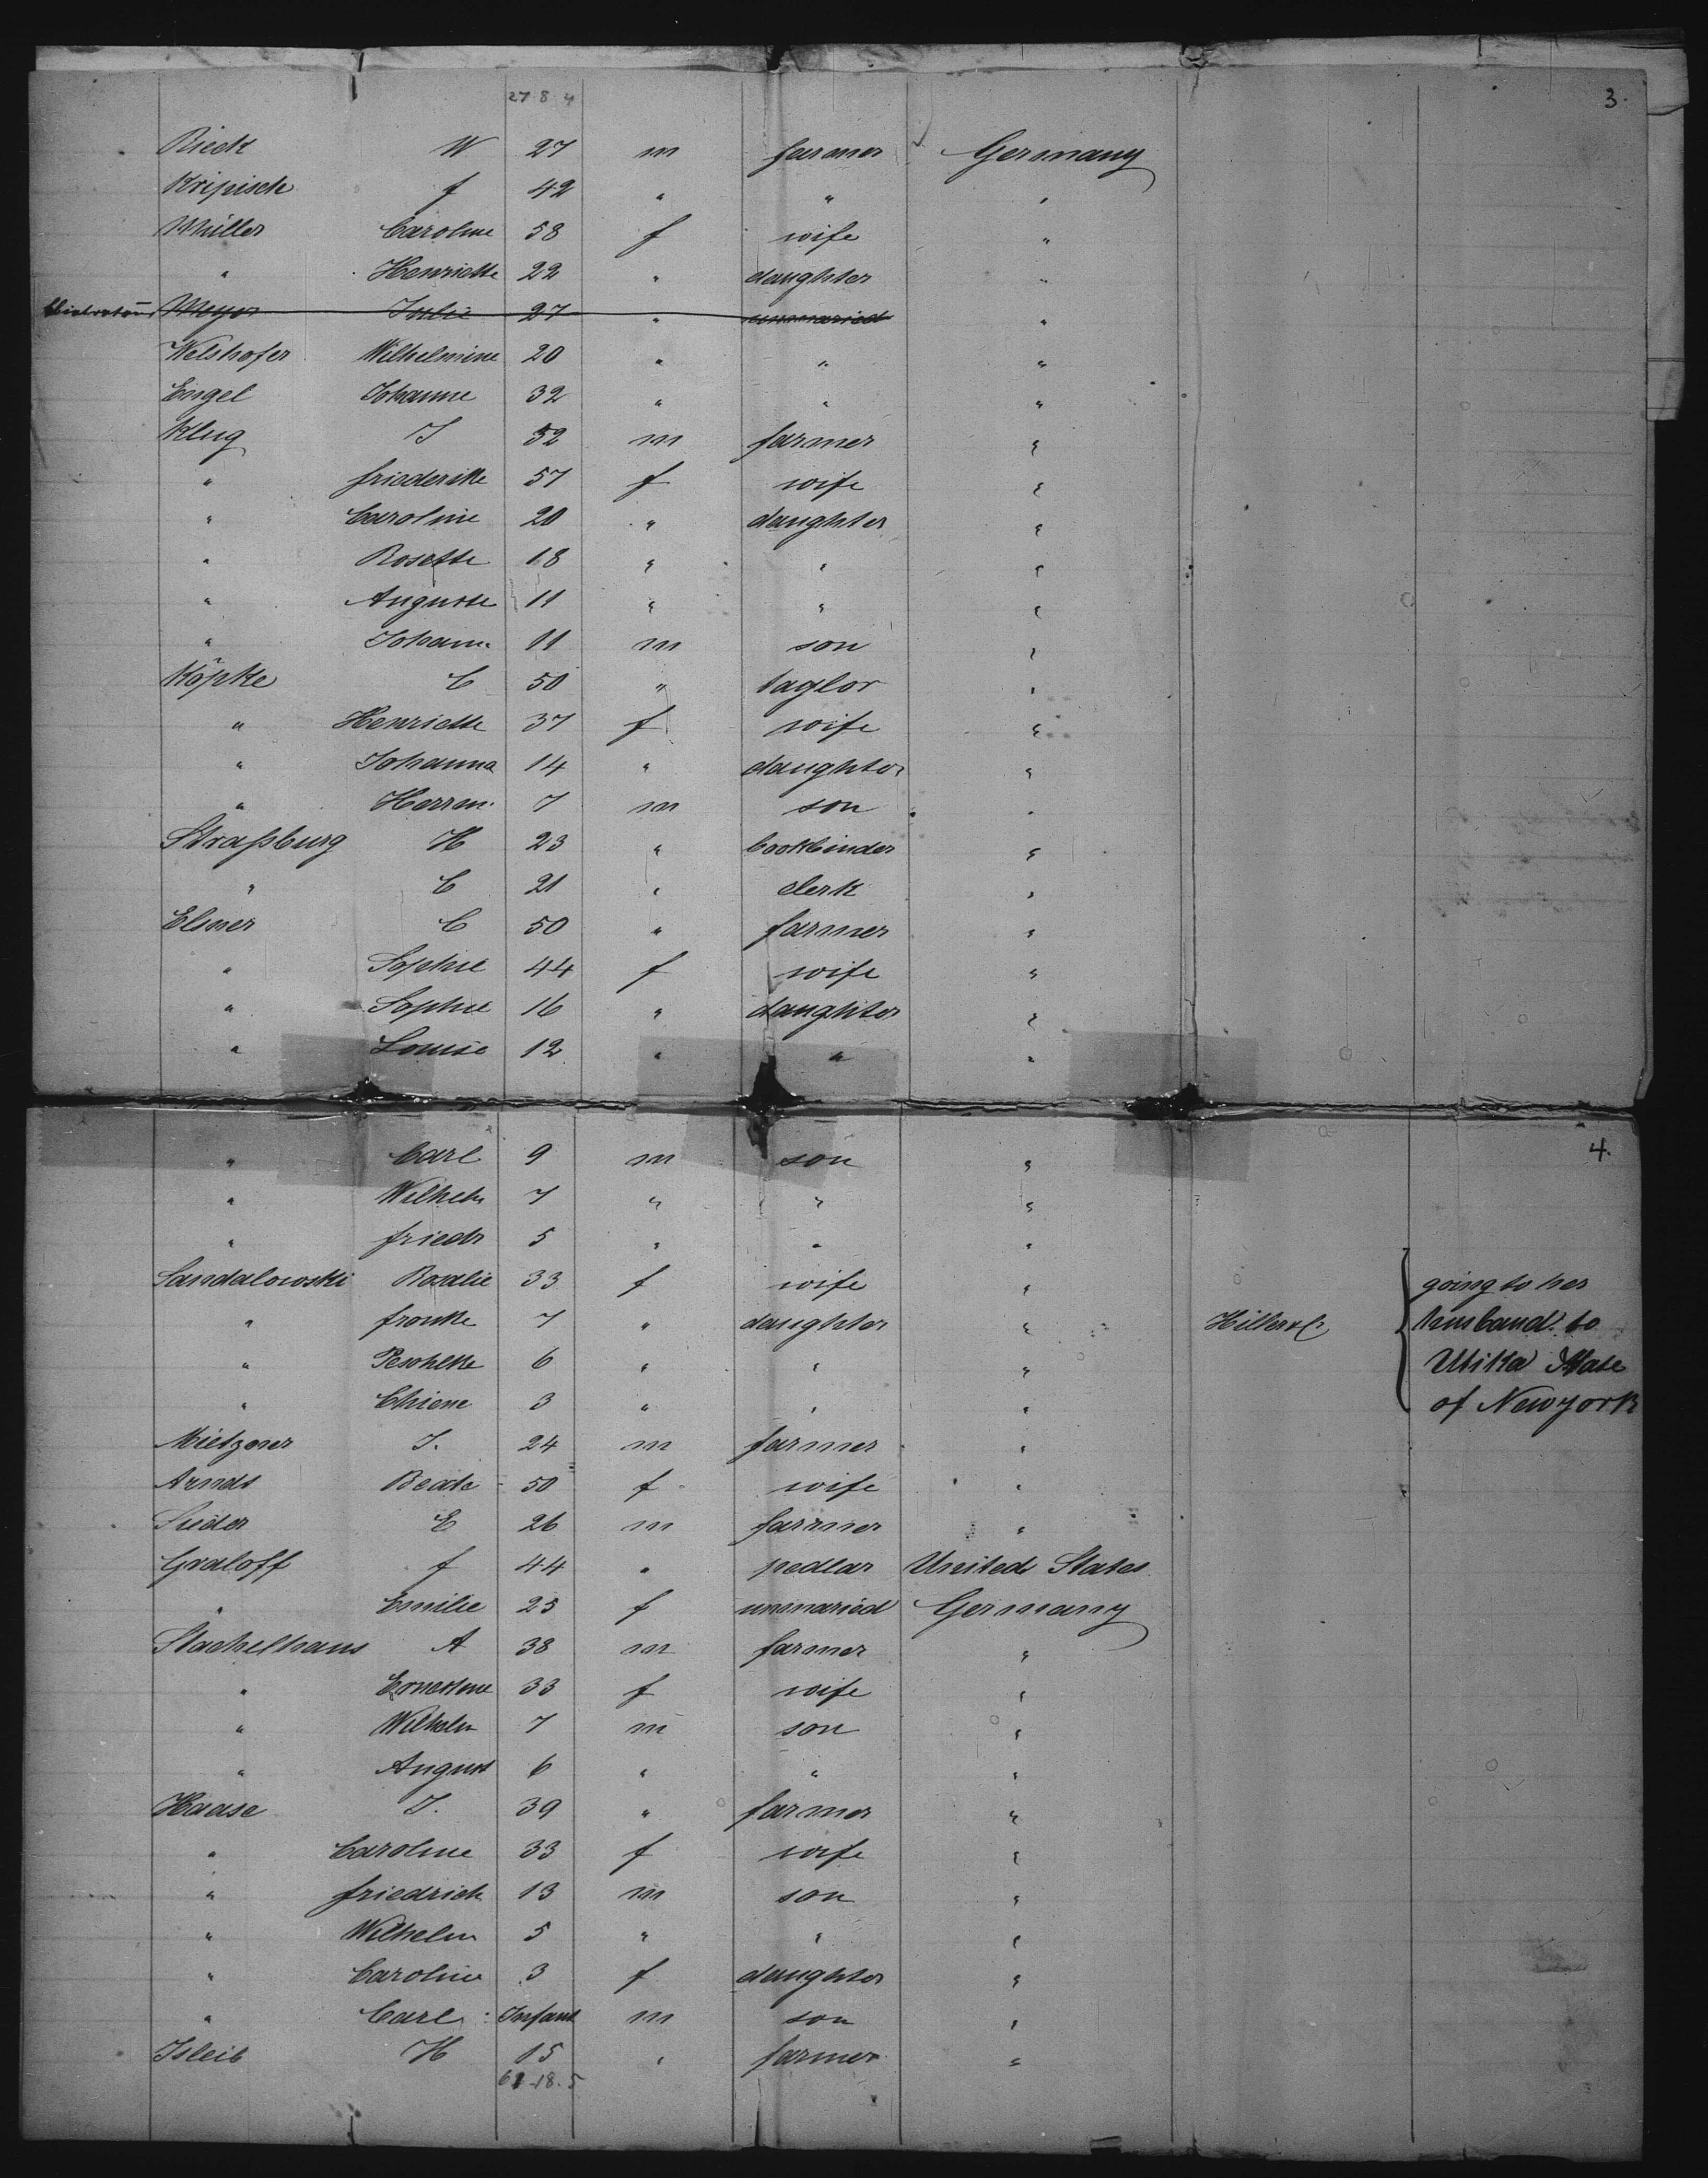 27 8 4
3.
Rieck W 27 m farmer Germany
Kripisch F 42 " " "
Müller Caroline 58 f wife "
" Henriette 22 " daughter "
Meyer Julie 27 " unmaried "
Welshofer Wilhelmine 20 " " "
Engel Johanne 32 " " "
Klug J 52 m farmer "
" Friederike 57 f wife "
" Caroline 20 " daughter "
" Rosette 18 " " "
" Auguste 11 " " "
" Johann 11 m son "
Köpke C 50 " taylor "
" Henriette 37 f wife "
" Johanna 14 " daughter "
" Herrm. 7 m son "
Straßburg H 23 " bookbinder "
" C 21 " clerk "
Elsner C 50 " farmer "
" Sophie 44 f wife "
" Sophie 16 " daughter "
" Louise 12 " " "
4.
" Carl 9 m son "
" Wilhelm 7 " " "
" Friedr 5 " " "
Sandalowski Rosalie 33 f wife " going to her
" Fronke 7 " daughter " husband to
" Peschke 6 " " " Utika State
" Chiene 3 " " " of New york
Mietzner J. 24 m farmer "
Arndt Beate 50 f wife "
Sieder E 26 m farmer "
Graloff F 44 " pedlar United States
" Emilie 23 f unmaried Germany
Stachelhaus A 38 m farmer "
" Ernestine 33 f wife "
" Wilhelm 7 m son "
" August 6 " " "
Haase J. 39 " farmer "
" Caroline 33 f wife "
" Friedrich 13 m son "
" Wilhelm 5 " " "
" Caroline 3 f daughter "
" Carl Infant m son "
Isleib H 15 " farmer "
18. 5